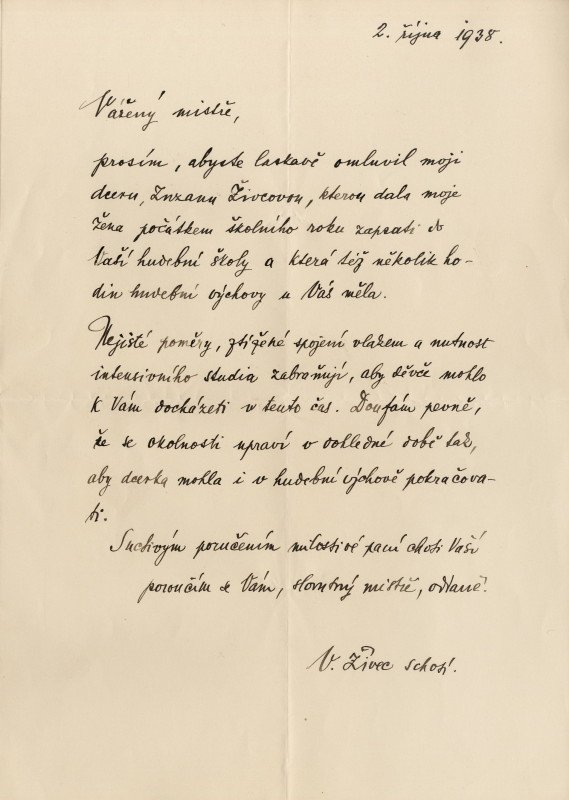 2. října 1938.
Vážený mistře,
prosím, abyste laskavě omluvil moji
dceru, Zuzanu Živcovou, kterou dala moje
žena počátkem školního roku zapsati do
Vaší hudební školy a která též několik ho-
din hudební výchovy u Vás měla.
Nejisté poměry, ztížené spojení vlakem a nutnost
intensivního studia zabraňují, aby děvče mohlo
k Vám docházeti v tento čas. Doufám pevně,
že se okolnosti upraví v dohledné době tak,
aby dcerka mohla i v hudební výchově pokračova-
ti.
S uctivým poručením milostivé paní choti Vaší
poroučím se Vám, slovutný mistře, oddaně:
V. Živec